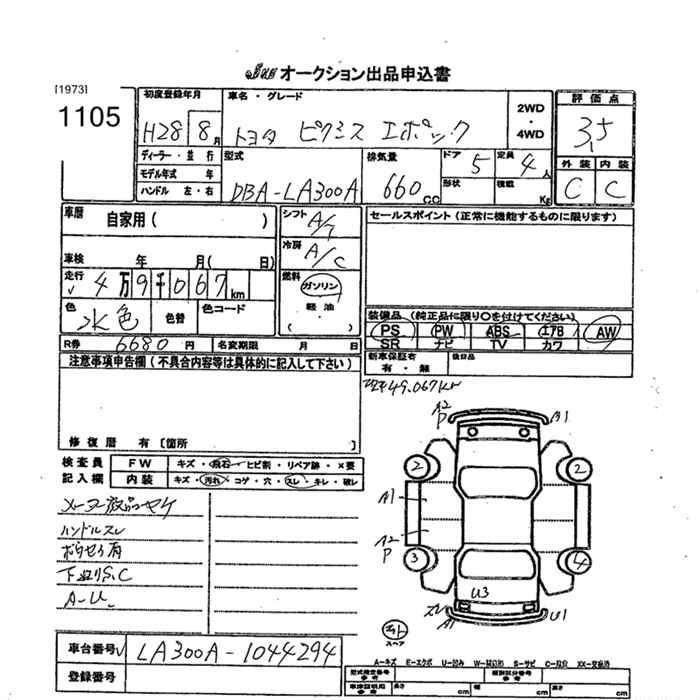 オークション出品申込書
[1973]
1105
初度登録年月
H28 8月
車名・グレード
トヨタ ピクシス エポック
2WD
・
4WD
評価点
3.5
外装 内装
C C
ディーラー・並行
モデル年式 年
ハンドル 左・右
型式
DBA-LA300A
排気量
660 CC
ドア 5
形状
定員 4人
積載 Kg
車歴 自家用( )
車検 年 月( 日)
走行 4万9千067km
色 水色
色替
色コード
シフト A/T
冷房 A/C
燃料
ガソリン
・
軽油
セールスポイント(正常に機能するものに限ります)
装備品(純正品に限り○を付けてください)
PS PW ABS エアB AW
SR ナビ TV カワ
R券 6680円
名変期限 月 日
新車保証有
有・無
後日品
注意事項申告欄(不具合内容等は具体的に記入して下さい)
49.067km
修復歴 有 [箇所 ]
検査員
記入欄
FW キズ・飛石・ヒビ割・リペア跡・×要
内装 キズ・汚れ・コゲ・穴・スレ・キレ・破レ
ハンドルスレ
下回りS.C
A-U
A2
P
B1
2
2
A1
A2
P
3
4
U3
スレ
A1
U1
スペア
車台番号 LA300A-1044294
登録番号
A-キズ E-エクボ U-凹み S-サビ C-腐食
型式指定番号
類別区分番号
長さ cm 幅 cm 高さ cm